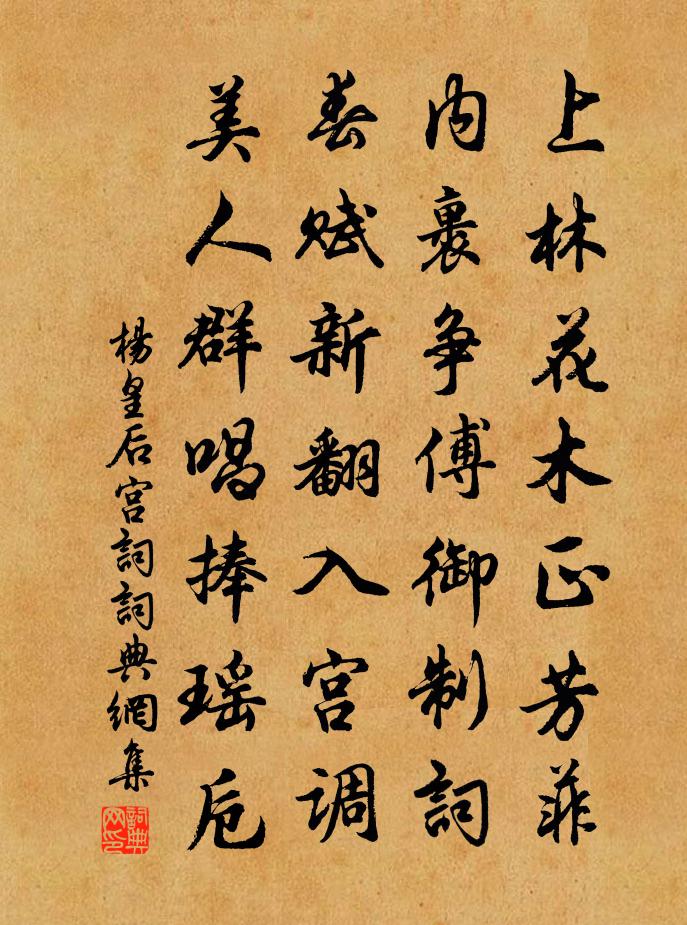 上林花木正芳菲
内裏争傅御制詞
春赋新翻入宫调
美人群唱捧瑶卮
楊皇后宫詞詞典網集
詞典网印